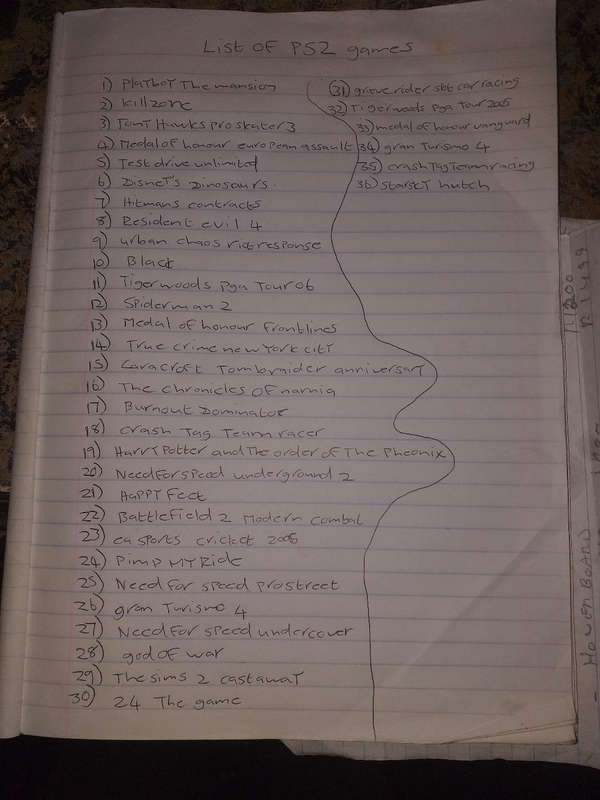 List OF PS2 games
1) PlaYboY The mansion
2) killzone
3) TonY Hawks pro skater 3
4) Medal of honour european assault
5) Test drive unlimited
6) DisneY's Dinosaurs.
7) Hitmans contracts
8) Resident evil 4
9) urban chaos riot response
10) Black
11) Tigerwoods pga Tour 06
12) Spiderman 2
13) Medal of honour frontlines
14) True crime new York citY
15) Laracroft Tombraider anniversarY
16) The chronicles OF narnia
17) Burnout Dominator
18) crash Tag Team racer
19) HarrY Potter and The order of The Pheonix
20) Need For speed underground 2
21) HaPPY Feet
22) BattleField 2 Modern combat
23) ea sports cricket 2005
24) Pimp MY Ride
25) Need for speed prostreet
26) gran Turismo 4
27) Need For speed undercover
28) god OF war
29) The sims 2 castawaY
30) 24 The game
31) grove rider slot car racing
32) Tigerwoods pga Tour 2005
33) medal of honour vanguard
34) gran Turismo 4
35) crash Tag Team racing
36) starskY hutch
HOVEN BOARD